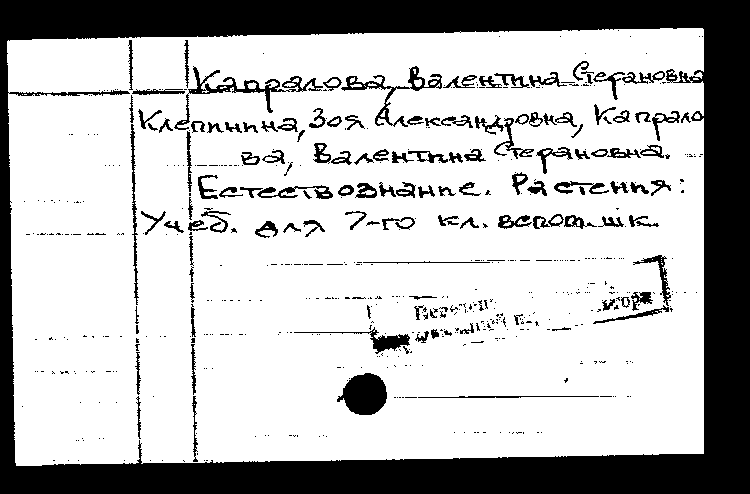 Капралова, Валентина Стефановна
Клепинина, Зоя Александровна, Капрало
ва, Валентина Стефановна.
Естествознание. Растения:
Учеб. для 7-го кл. вспом. шк.